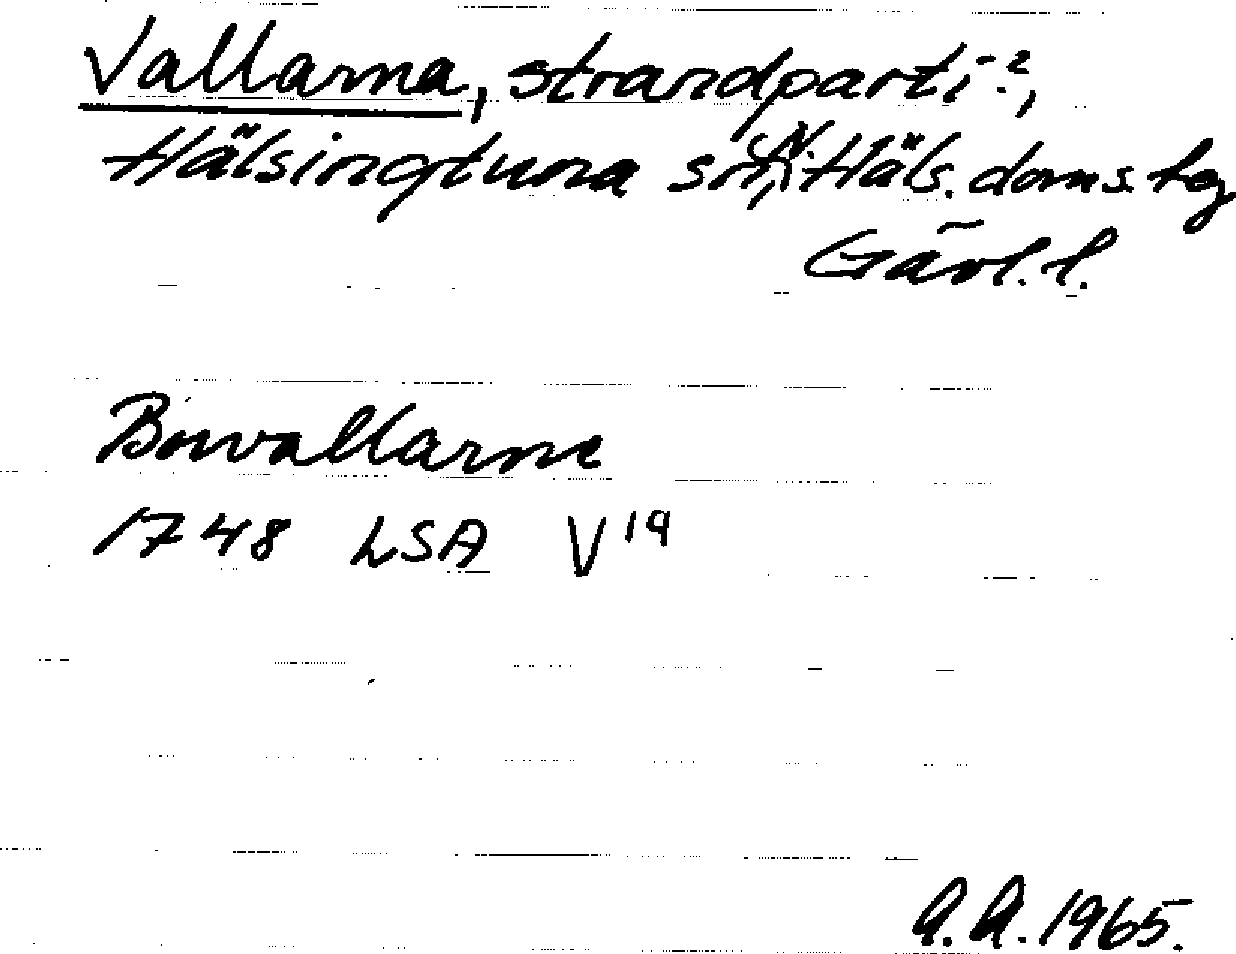 Vallarna, strandparti?,
Hälsingtuna sn, N. Häls. doms. tg
Gävl. l.
Bovvallarne
1748 LSA V19
A. A. 1965.